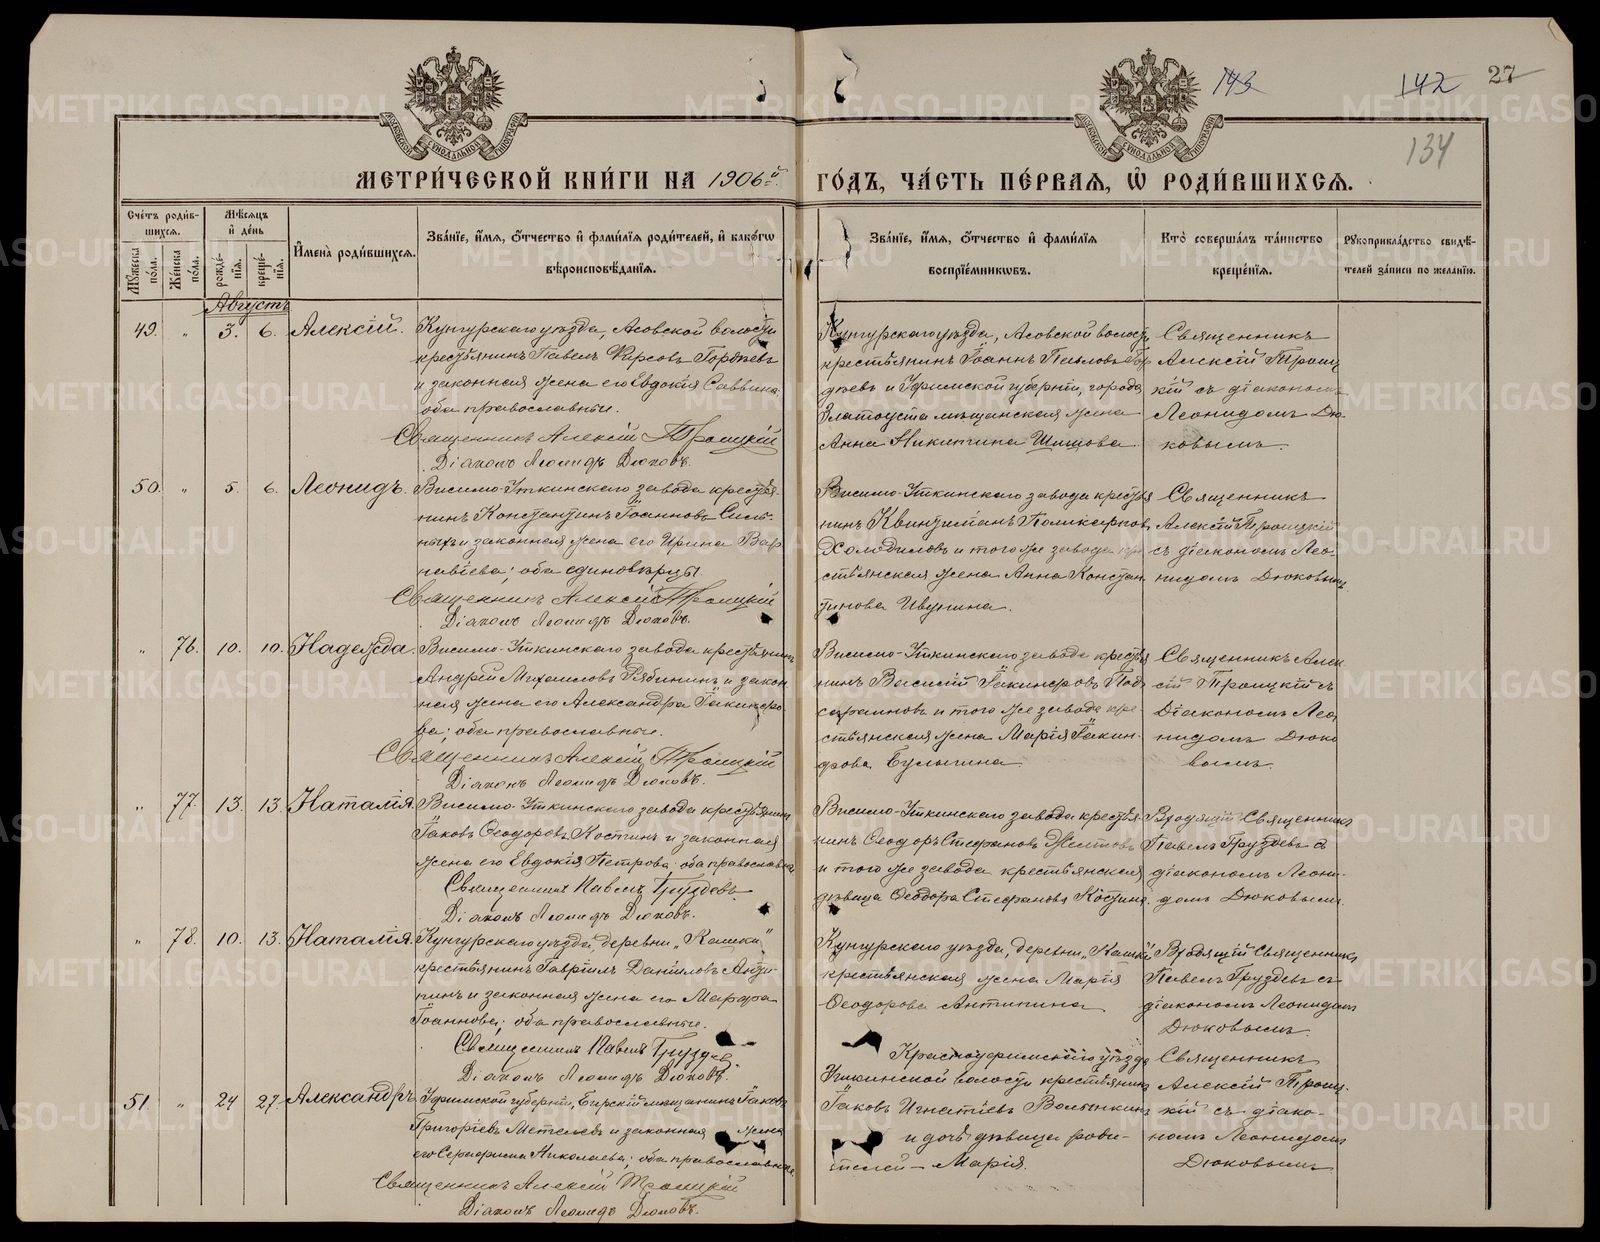 143
142
27
134
МЕТРИ́ЧЕСКОЙ КНИ́ГИ НА 1906й ГО́ДЪ, ЧА́СТЬ ПЕ́РВАЯ, Ѡ РОДИ́ВШИХСЯ.
Сче́тъ роди́вшихся.
Мꙋ́жеска по́ла.
Же́нска по́ла.
Мѣ́сяцъ и҆ де́нь
рожде́нїя.
креще́нїя.
И҆мена̀ роди́вшихся.
Зва́нїе, и҆́мя, ѻ҆́тчество и҆ фами́лїя роди́телей, и҆ како́гѡ
вѣроисповѣ́данїя.
Зва́нїе, и҆́мя, ѻ҆́тчество и҆ фами́лїя
воспрїе́мниковъ.
Кто̀ соверша́лъ та́инство
креще́нїя.
Рꙋкоприкла́дство свидѣ́-
телей за́писи по жела́нїю.
Августъ
49. " 3. 6. Алексій.
Кунгурскаго уѣзда, Асовской волости
крестьянинъ Павелъ Фирсовъ Гордѣевъ
и законная жена его Евдокія Саввина
оба православные.
Священникъ Алексій Троицкій
Діаконъ Леонидъ Дюковъ.
Кунгурскаго уѣзда, Асовской волости
крестьянинъ Іоаннъ Павловъ Гор
дѣевъ и Уфимской губерніи, города
Златоуста мѣщанская жена
Анна Никитина Шишова.
Священникъ
Алексій Троиц
кій съ діакономъ
Леонидомъ Дю-
ковымъ.
50. " 5. 6. Леонидъ.
Висимо-Уткинскаго завода крестья-
нинъ Константинъ Іоанновъ Силь-
ныхъ и законная жена его Ирина Вар
навіева; оба единовѣрцы.
Священникъ Алексій Троицкій
Діаконъ Леонидъ Дюковъ.
Висимо-Уткинскаго завода крестья
нинъ Квинтиліанъ Поликарповъ
Холодиловъ и того же завода кре
стьянская жена Анна Констан
тинова Ивунина.
Священникъ
Алексій Троицкій
съ діакономъ Лео-
нидомъ Дюковымъ
" 76. 10. 10. Надежда.
Висимо-Уткинскаго завода крестьянинъ
Андрей Михаиловъ Рябининъ и закон
ная жена его Александра Іакинфо
ва; оба православные.
Священникъ Алексій Троицкій
Діаконъ Леонидъ Дюковъ.
Висимо-Уткинскаго завода крестья
нинъ Василій Іакинфовъ
и того же завода кре-
стьянская жена Марія Іакин-
фова Булыгина.
Священникъ Алек
сій Троицкій съ
Діакономъ Лео
нидомъ Дюко
вымъ.
" 77. 13. 13. Наталія.
Висимо-Уткинскаго завода крестьянинъ
Іаковъ Ѳеодоровъ Костинъ и законная
жена его Евдокія Петрова; оба православные
Священникъ Павелъ Груздевъ
Діаконъ Леонидъ Дюковъ.
Висимо-Уткинскаго завода крестья-
нинъ Ѳеодоръ Стефановъ
и того же завода крестьянская
дѣвица Ѳеодора Стефанова Костина.
Входящій Священникъ
Павелъ Груздевъ съ
діакономъ Леони-
домъ Дюковымъ.
" 78. 10. 13. Наталія.
Кунгурскаго уѣзда деревни „Кашки"
крестьянинъ Гавріилъ Даніиловъ Анти-
пинъ и законная жена его Марѳа
Іоаннова; оба православные.
Священникъ Павелъ Груздевъ
Діаконъ Леонидъ Дюковъ.
Кунгурскаго уѣзда, деревни „Кашки"
крестьянская жена Марія
Ѳеодорова Антипина
Входящій Священникъ
Павелъ Груздевъ съ
діакономъ Леонидомъ
Дюковымъ.
51. " 24 27. Александръ.
Уфимской губерніи, Бирскій мѣщанинъ Іаковъ
Григоріевъ Метелевъ и законная жена
его Серафима Николаева; оба православные.
Священникъ Алексій Троицкій
Діаконъ Леонидъ Дюковъ.
Красноуфимскаго уѣзда
Уткинской волости крестьянинъ
Іаковъ Игнатіевъ Волынкинъ
и дочь дѣвица роди-
телей - Марія.
Священникъ
Алексій Троиц-
кій съ діако-
номъ Леонидомъ
Дюковымъ